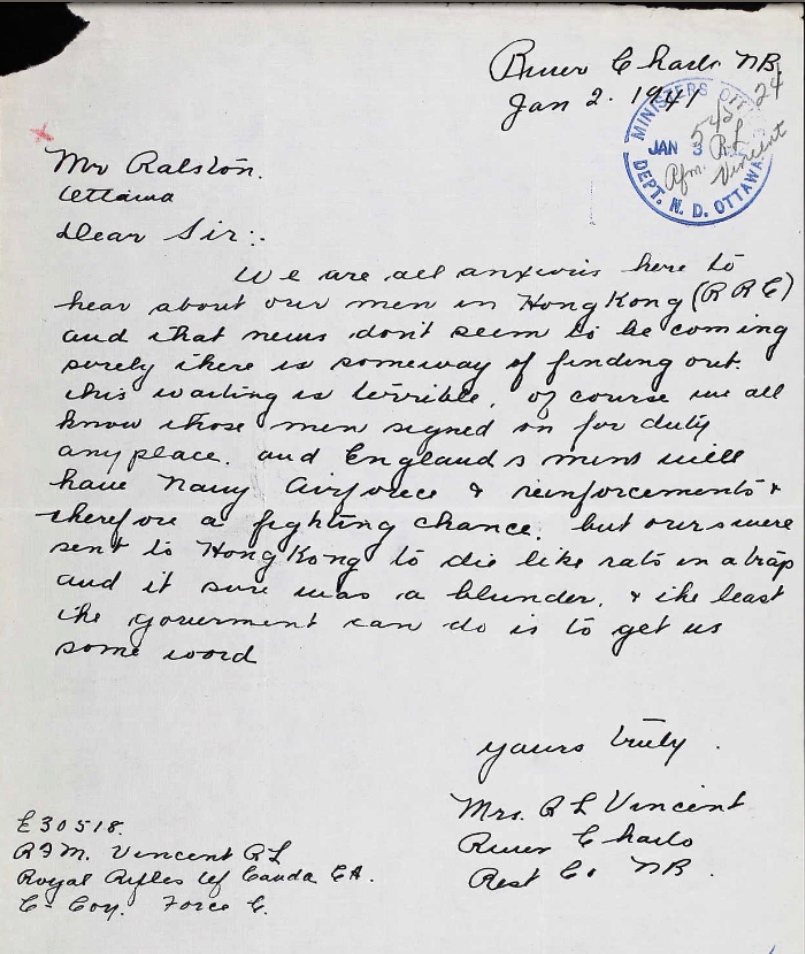 River Charlo NB.
Jan 2. 1941
MINISTERS
JAN 3
DEPT. N. D. OTTAWA
24
Rfm. R L
Vincent
Mr Ralston.
Ottawa
Dear Sir:.
We are all anxious here to
hear about our men in Hong Kong (R R C)
and that news don't seem to be coming
surely there is someway of finding out.
this waiting is terrible, of course we all
know those men signed on for duty
any place. and Englands mens will
have Navy Airforece & reinforcements &
therefore a fighting chance. but ours were
sent to Hong Kong to die like rats in a trap
and it sure was a blunder. & the least
the goverment can do is to get us
some word
yours truly.
Mrs. R L Vincent
River Charlo
Rest Co NB.
E30518.
RFM. Vincent RL
Royal Rifles of Canda CA.
C- Coy. Force C.